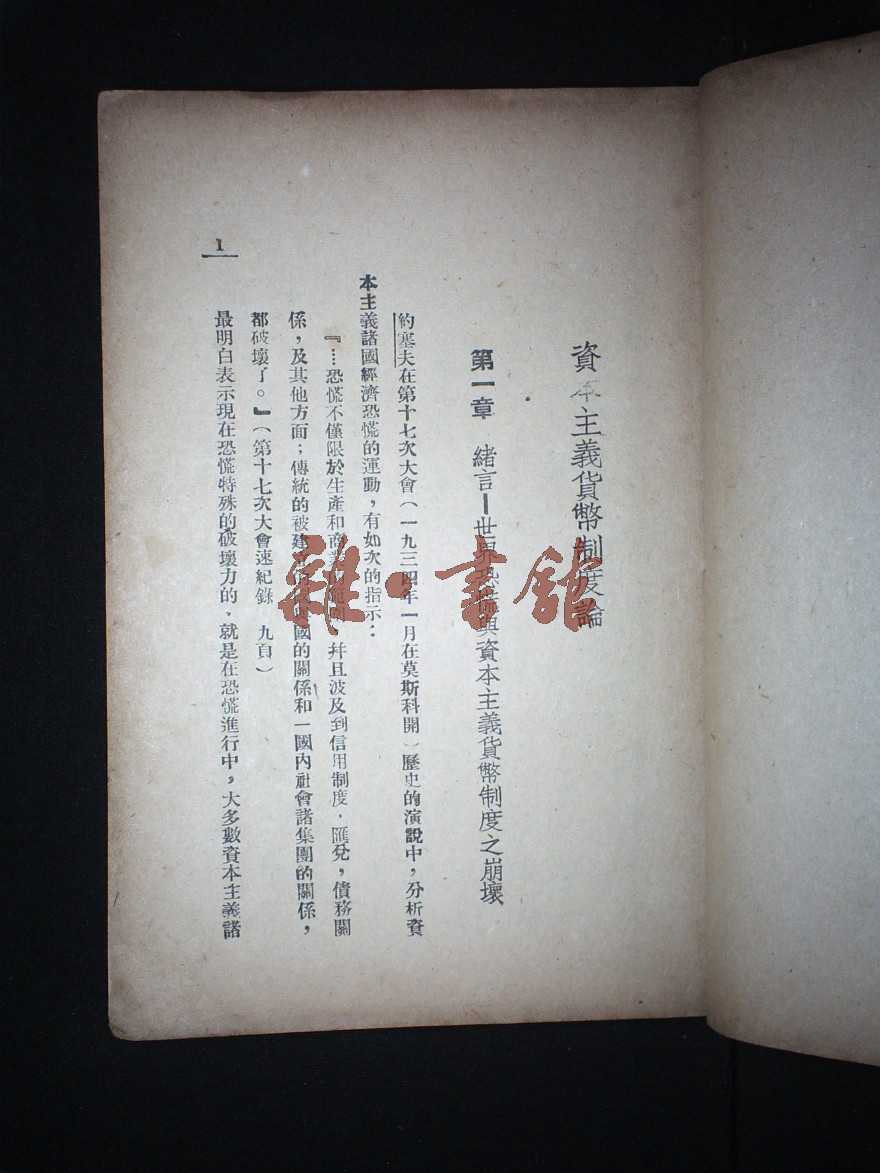 資本主義貨幣制度論
第一章 緒言—世界恐慌與資本主義貨幣制度之崩壞
約塞夫在第十七次大會(一九三四年一月在莫斯科開)歷史的演說中,分析資
本主義諸國經濟恐慌的運動,有如次的指示:
『…恐慌不僅限於生產和商業的範圍,幷且波及到信用制度,匯兌,債務關
係,及其他方面;傳統的被建 國的關係和一國內社會諸集團的關係,
都破壞了。』(第十七次大會速紀錄 九頁)
最明白表示現在恐慌特殊的破壞力的,就是在恐慌進行中,大多數資本主義諸
1
雜·書館